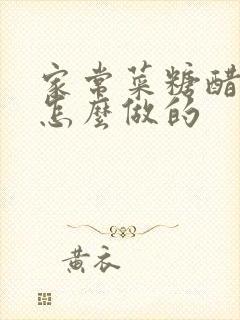 家常菜糖醋
怎麼做的
黄衣